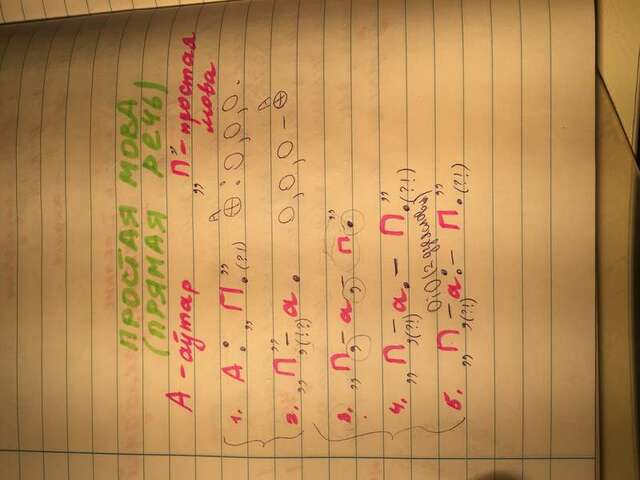 ПРОСТАЯ МОВА
(ПРЯМАЯ РЕЧЬ)
А - аўтар „П" - простая мова
1. А: „П."(?!) ⊕: О, О, О.
2. „П", (?!) - а. О, О, О - ⊕
3. „П, - а, - п."
4. „П, (?!) - а. - П."(?!)
5. „П, (?!) - а: - П."(?!)